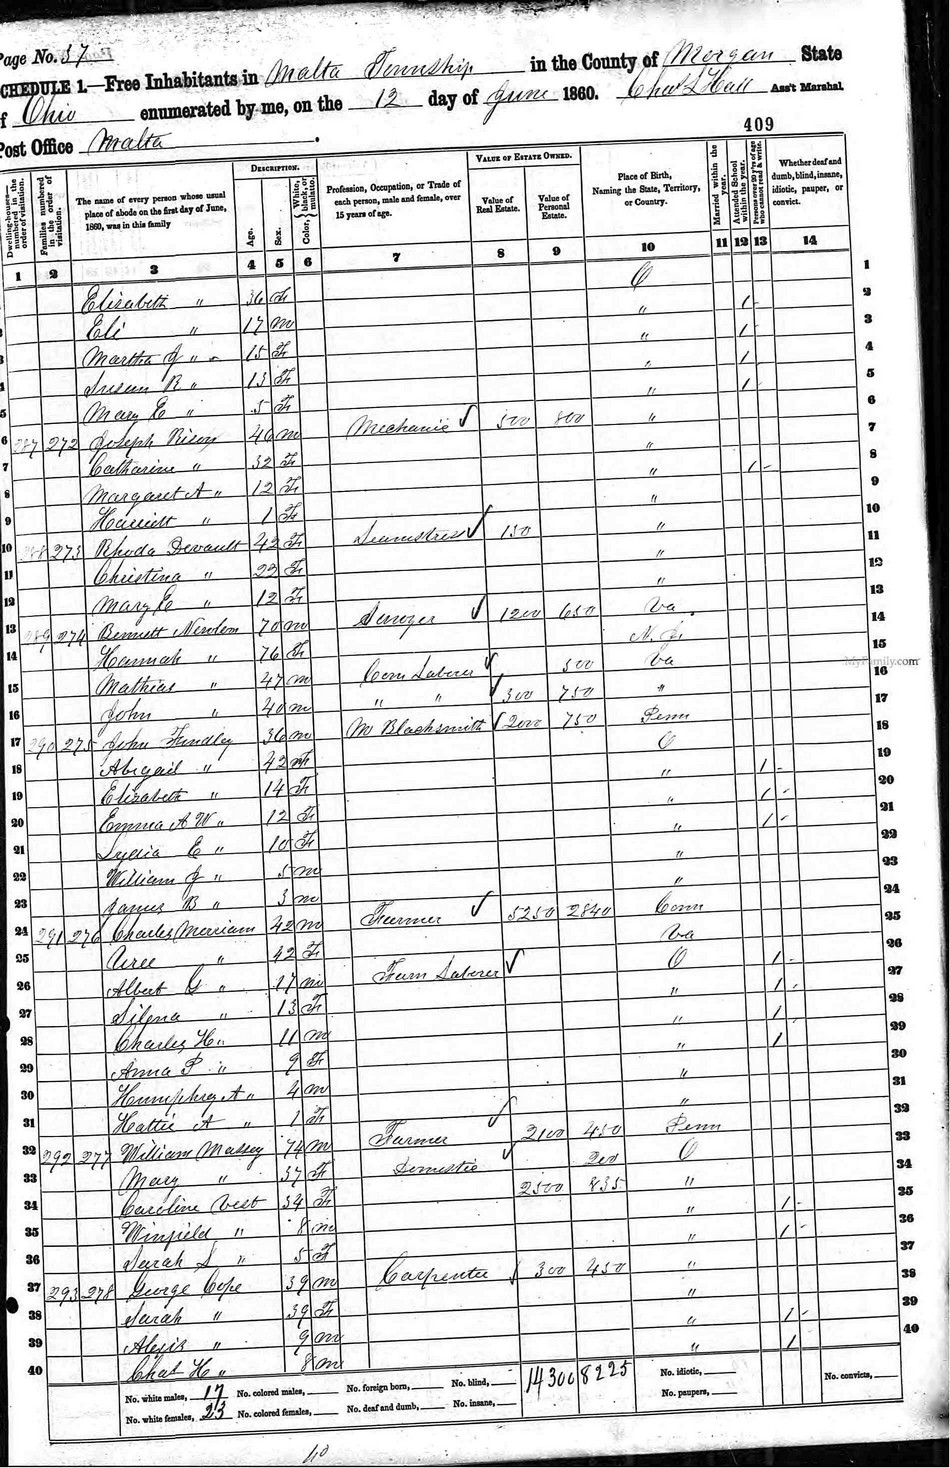 Page No. 57
SCHEDULE 1.—Free Inhabitants in Malta Township in the County of Morgan State
of Ohio enumerated by me, on the 12 day of June 1860. Chas L Hall Ass't Marshal.
Post Office Malta
409
Dwelling-houses—numbered in the order of visitation. Families numbered in the order of visitation. The name of every person whose usual place of abode on the first day of June, 1860, was in this family DESCRIPTION. Age. Sex. Color, { White, black, or mulatto. Profession, Occupation, or Trade of each person, male and female, over 15 years of age. VALUE OF ESTATE OWNED. Value of Real Estate. Value of Personal Estate. Place of Birth, Naming the State, Territory, or Country. Married within the year. Attended School within the year. Persons over 20 y'rs of age who cannot read & write. Whether deaf and dumb, blind, insane, idiotic, pauper, or convict.
1 2 3 4 5 6 7 8 9 10 11 12 13 14
Elizabeth " 36 F O 1
Eli " 17 m " 1 2
Martha J " 15 F " 1 3
Susan R " 13 F " 1 4
5 Mary E " 5 F " 1 5
6 287 272 Joseph 46 m Mechanic ✓ 500 800 " 6
7 Catharine " 32 F " 7
8 Margaret A " 12 F " 1 8
9 Harriett " 1 F " 9
10 288 273 Rhoda Devault 42 F Seamstress ✓ 150 " 10
11 Christina " 22 F " 11
12 Mary E " 12 F " 12
13 289 274 Bennett Newlon 70 m ✓ 1200 650 Va 13
14 Hannah " 76 F N. J. 14
15 Mathias " 47 m Com Laborer ✓ 300 Va 15
16 John " 40 m " " ✓ 300 750 " 16
17 290 275 John Findley 36 m M Blacksmith ✓ 2000 750 Penn 17
18 Abigail " 42 F O 18
19 Elizabeth " 14 F " 1 19
20 Emma A W " 12 F " 1 20
21 Lydia E " 10 F " 1 21
22 William J " 5 m " 22
23 James B " 3 m " 23
24 291 276 Charles Merriam 42 m Farmer ✓ 5250 2840 Conn 24
25 " 42 F Va 25
26 Albert G " 17 m Farm Laborer ✓ O 1 26
27 Silena " 13 F " 1 27
28 Charles H " 11 m " 1 28
29 Anna P " 9 F " 1 29
30 Humphrey A " 4 m " 30
31 Hattie A " 1 F ✓ " 31
32 292 277 William Massey 74 m Farmer ✓ 2100 450 Penn 32
33 Mary " 37 F Domestic 200 O 33
34 Caroline Vest 34 F 2500 835 " 34
35 Winfield " 8 m " 1 35
36 Sarah S " 5 F " 1 36
37 293 278 George Cope 39 m Carpenter ✓ 300 450 " 37
38 Sarah " 39 F " 38
39 Alexis " 9 m " 1 39
40 Chas H " 8 m " 1 40
No. white males, 17 No. colored males, No. foreign born, No. blind, 14300 8225 No. idiotic, No. convicts,
No. white females, 23 No. colored females, No. deaf and dumb, No. insane, No. paupers,
40
MyFamily.com